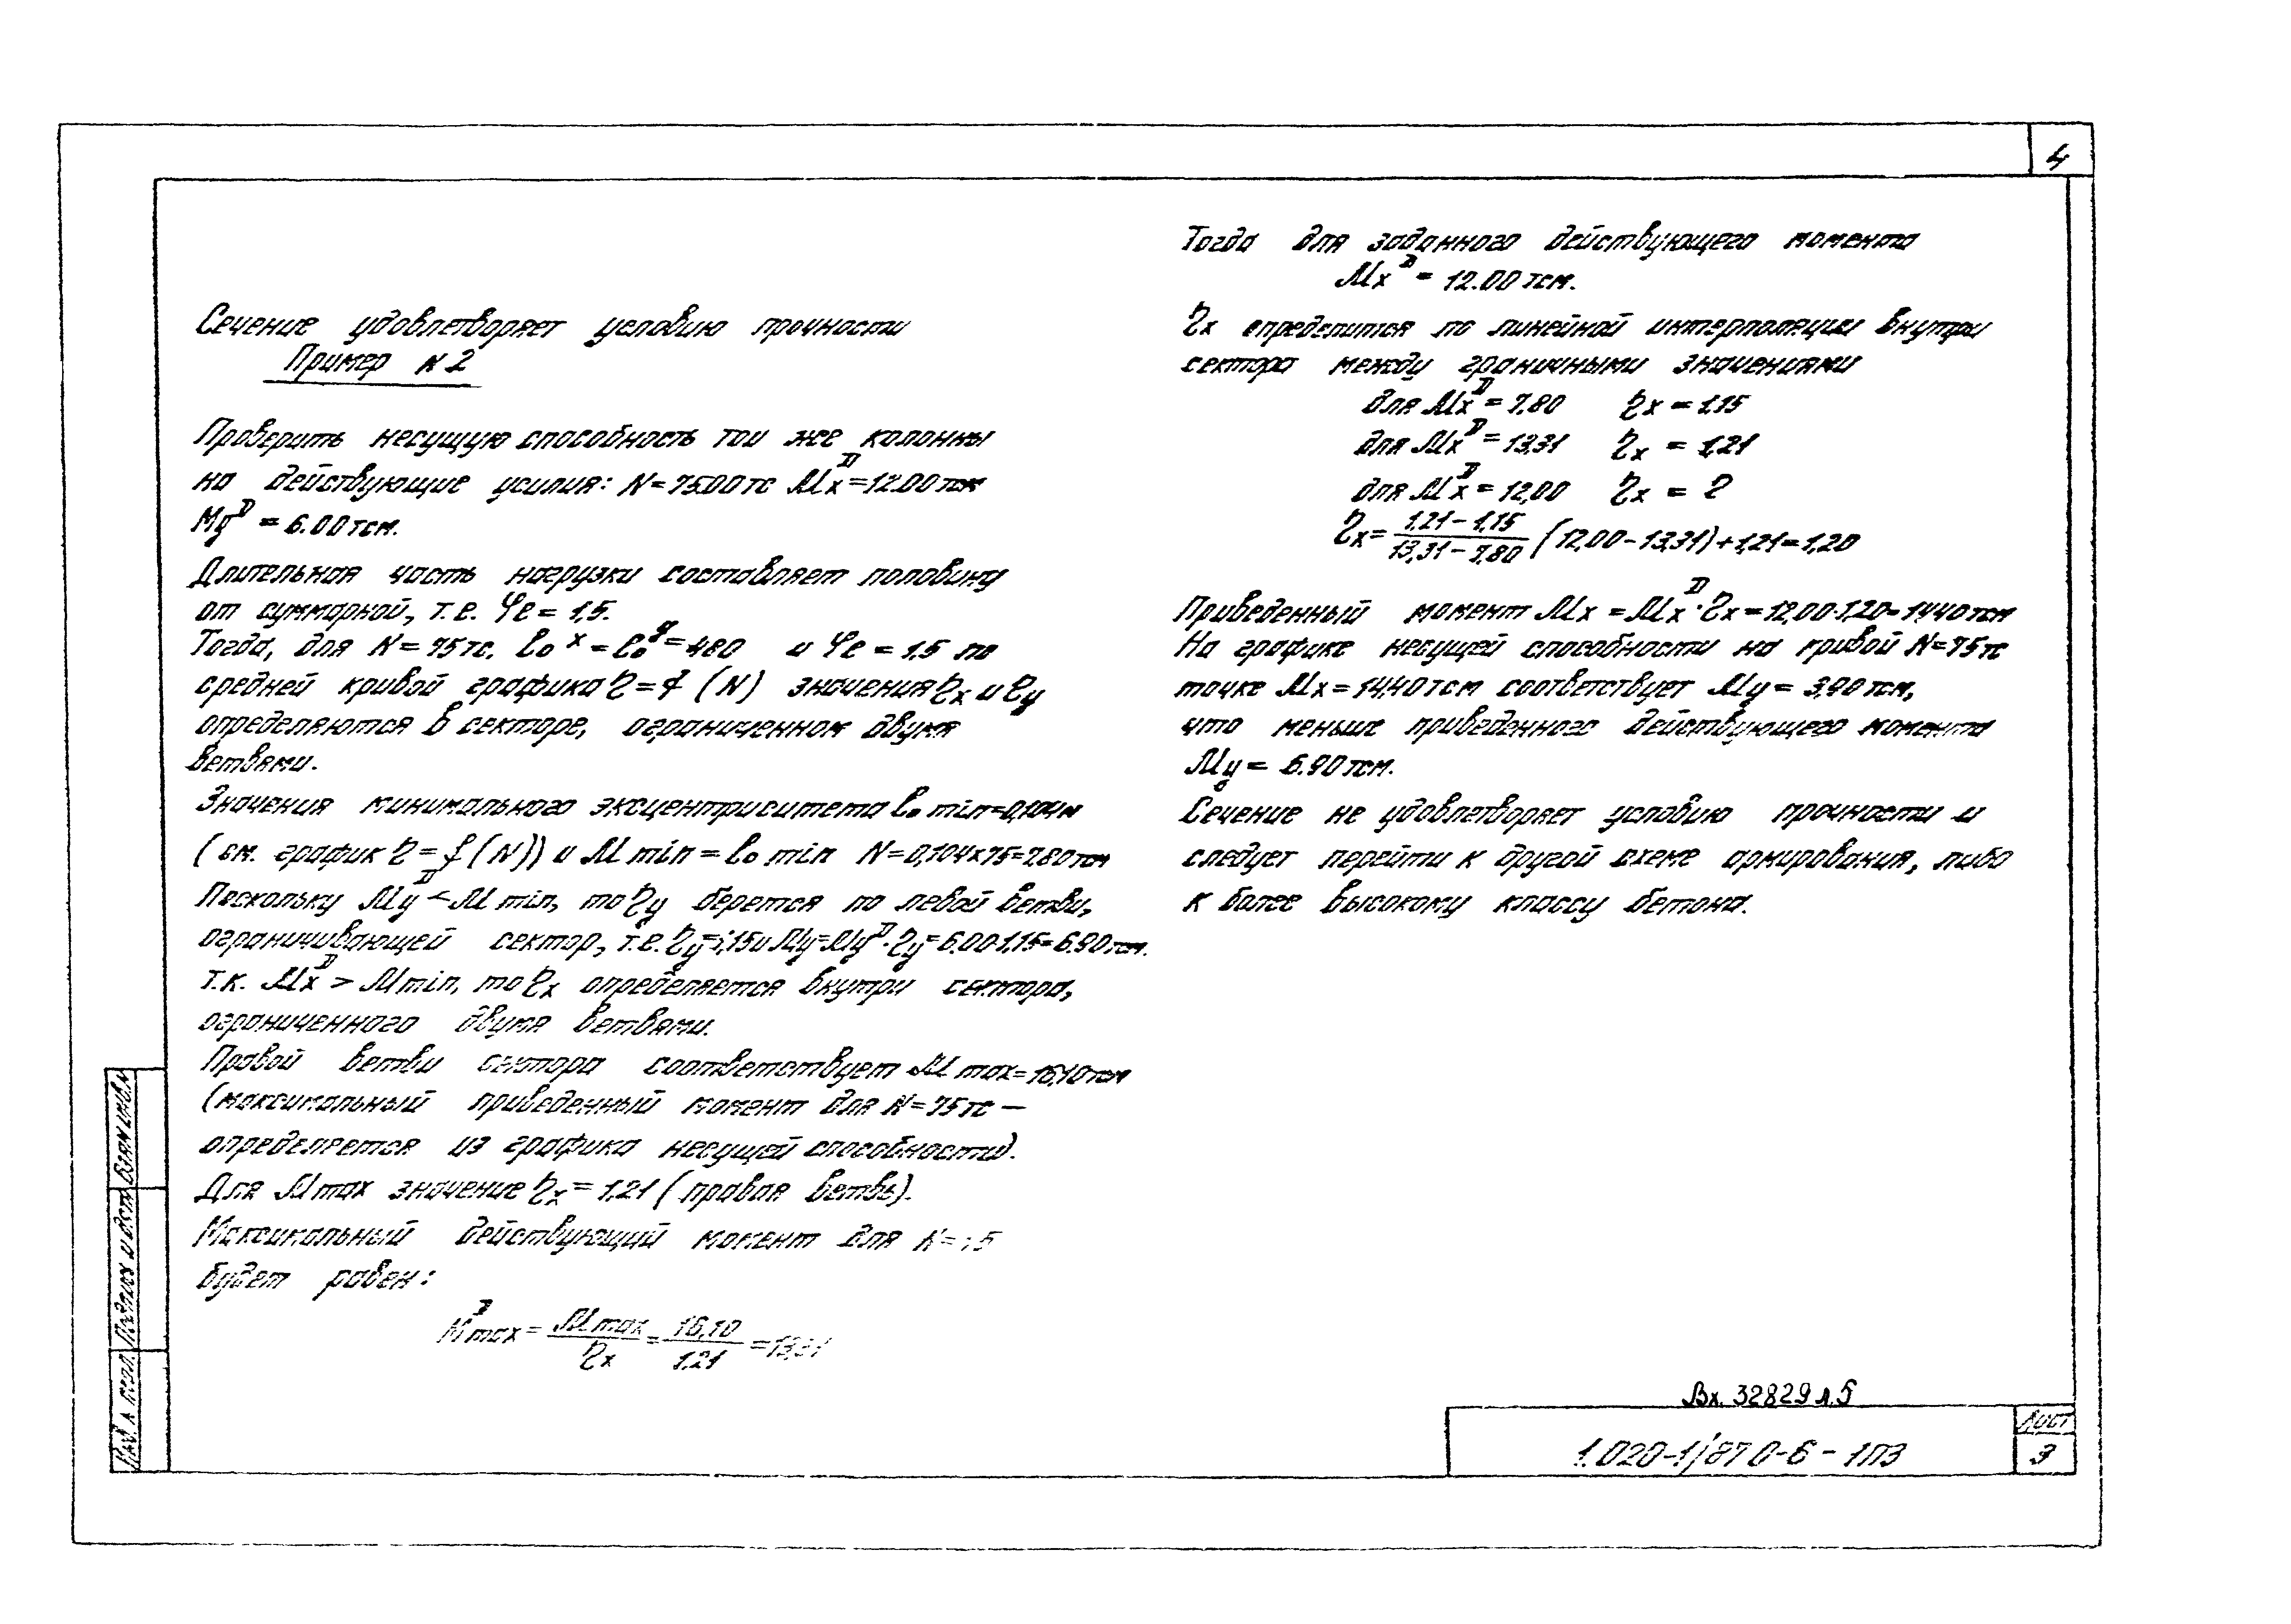 4
Сечение удовлетворяет условию прочности
Пример N 2
Проверить несущую способность той же колонны
на действующие усилия: N = 75.00 тс Mx^D = 12.00 тсм
My^D = 6.00 тсм.
Длительная часть нагрузки составляет половину
от суммарной, т.е. φe = 1,5.
Тогда, для N = 75 тс. lo^x = lo^y = 480 и φe = 1,5 по
средней кривой графика η = f (N) значения ηx и ηy
определяются в секторе, ограниченном двумя
ветвями.
Значения минимального эксцентриситета lo min = 0,104 м
(см. график η = f (N)) и M min = lo min N = 0,104 x 75 = 7.80 тсм
Поскольку My^D < M min, то ηy берется по левой ветви,
ограничивающей сектор, т.е. ηy = 1,15 и My = My^D · ηy = 6.00 · 1,15 = 6.90 тсм.
т.к. Mx^D > M min, то ηx определяется внутри сектора,
ограниченного двумя ветвями.
Правой ветви сектора соответствует M max = 16,10 тсм
(максимальный приведенный момент для N = 75 тс —
определяется из графика несущей способности).
Для M max значение ηx = 1,21 (правая ветвь).
Максимальный действующий момент для N = 75
будет равен:
M^D max = M max / ηx = 16,10 / 1.21 = 13,31
Тогда для заданного действующего момента
Mx^D = 12.00 тсм.
ηx определится по линейной интерполяции внутри
сектора между граничными значениями
для Mx^D = 7,80 ηx = 1,15
для Mx^D = 13,31 ηx = 1,21
для Mx^D = 12,00 ηx = ?
ηx = (1,21 - 1,15) / (13,31 - 7,80) (12,00 - 13,31) + 1,21 = 1,20
Приведенный момент Mx = Mx^D · ηx = 12,00 · 1,20 = 14,40 тсм
На графике несущей способности на кривой N = 75 тс
точке Mx = 14,40 тсм соответствует My = 3,90 тсм,
что меньше приведенного действующего момента
My = 6.90 тсм.
Сечение не удовлетворяет условию прочности и
следует перейти к другой схеме армирования, либо
к более высокому классу бетона.
Взам инв. N
Подпись и дата
Инв. N подл.
Вх. 32829 л.5
1.020-1/87 0-6 - 1ПЗ
Лист
3